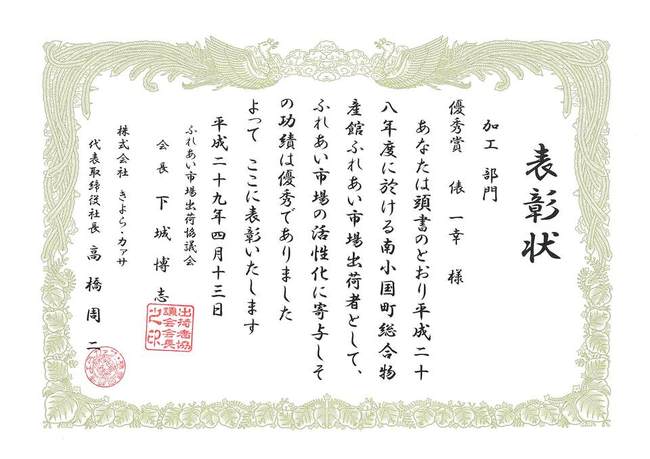 表彰状
加工 部門
優秀賞 俵 一幸 様
あなたは頭書のとおり平成二十
八年度に於ける南小国町総合物
産館ふれあい市場出荷者として、
ふれあい市場の活性化に寄与しそ
の功績は優秀でありました
よって ここに表彰いたします
平成二十九年四月十三日
ふれあい市場出荷協議会
会長 下城博志
出荷者協
議会会長
之印
株式会社 きよら・カァサ
代表取締役社長 高橋周二